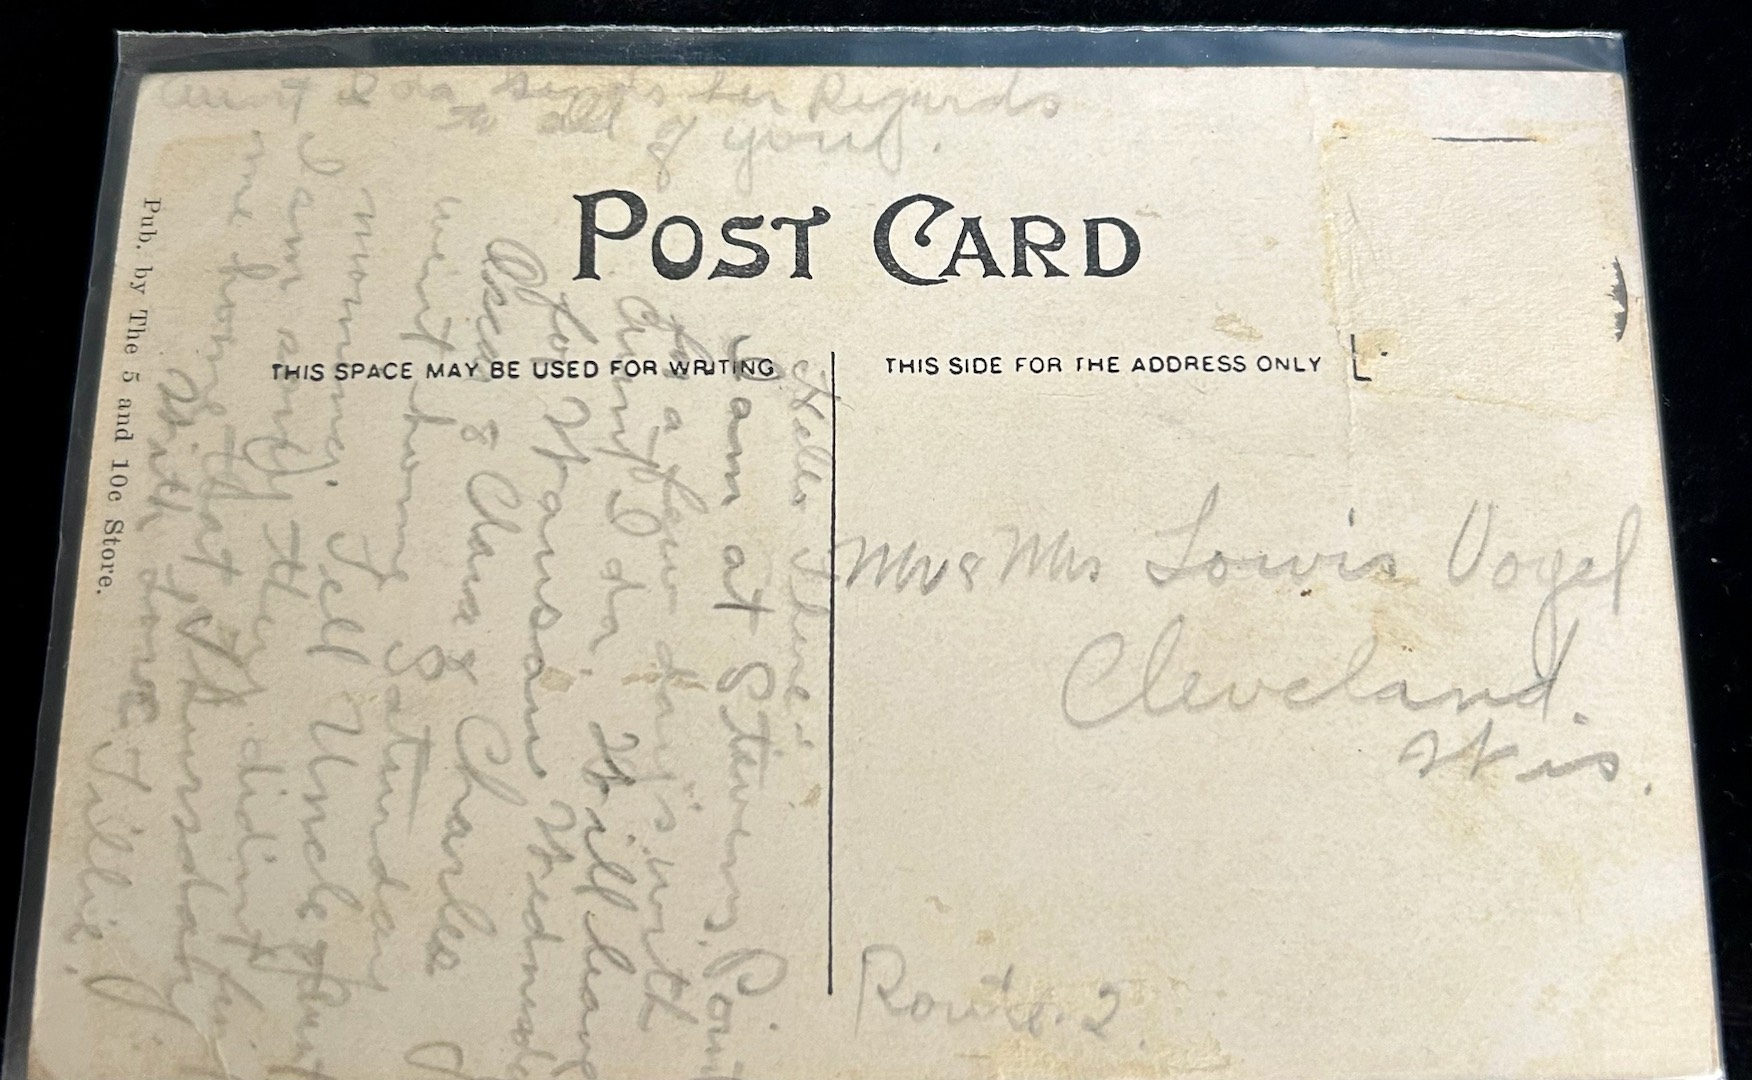 Aunt Ida sends her Regards
to all of you.
POST CARD
THIS SPACE MAY BE USED FOR WRITING
THIS SIDE FOR THE ADDRESS ONLY
Pub. by The 5 and 10c Store.
Hello There:
I am at Stevens Point
for a few day's with
Aunt Ida. Will leave
for Wausau Wednesday
Oscar & Clara & Charles
went home Saturday
morning. Tell Uncle
I am sorry they didn't
me home that Thursday
With Love Tillie.
Mr & Mrs Lowis Vogel
Cleveland.
Wis.
Route. 2